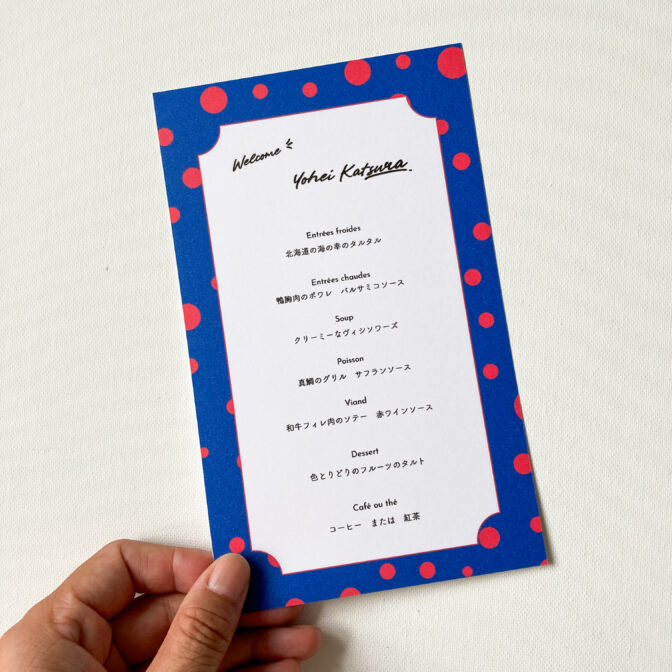 Welcome
Yohei Katsura.
Entrées froides
北海道の海の幸のタルタル
Entrées chaudes
鴨胸肉のポワレ　バルサミコソース
Soup
クリーミーなヴィシソワーズ
Poisson
真鯛のグリル　サフランソース
Viand
和牛フィレ肉のソテー　赤ワインソース
Dessert
色とりどりのフルーツのタルト
Café ou thé
コーヒー　または　紅茶